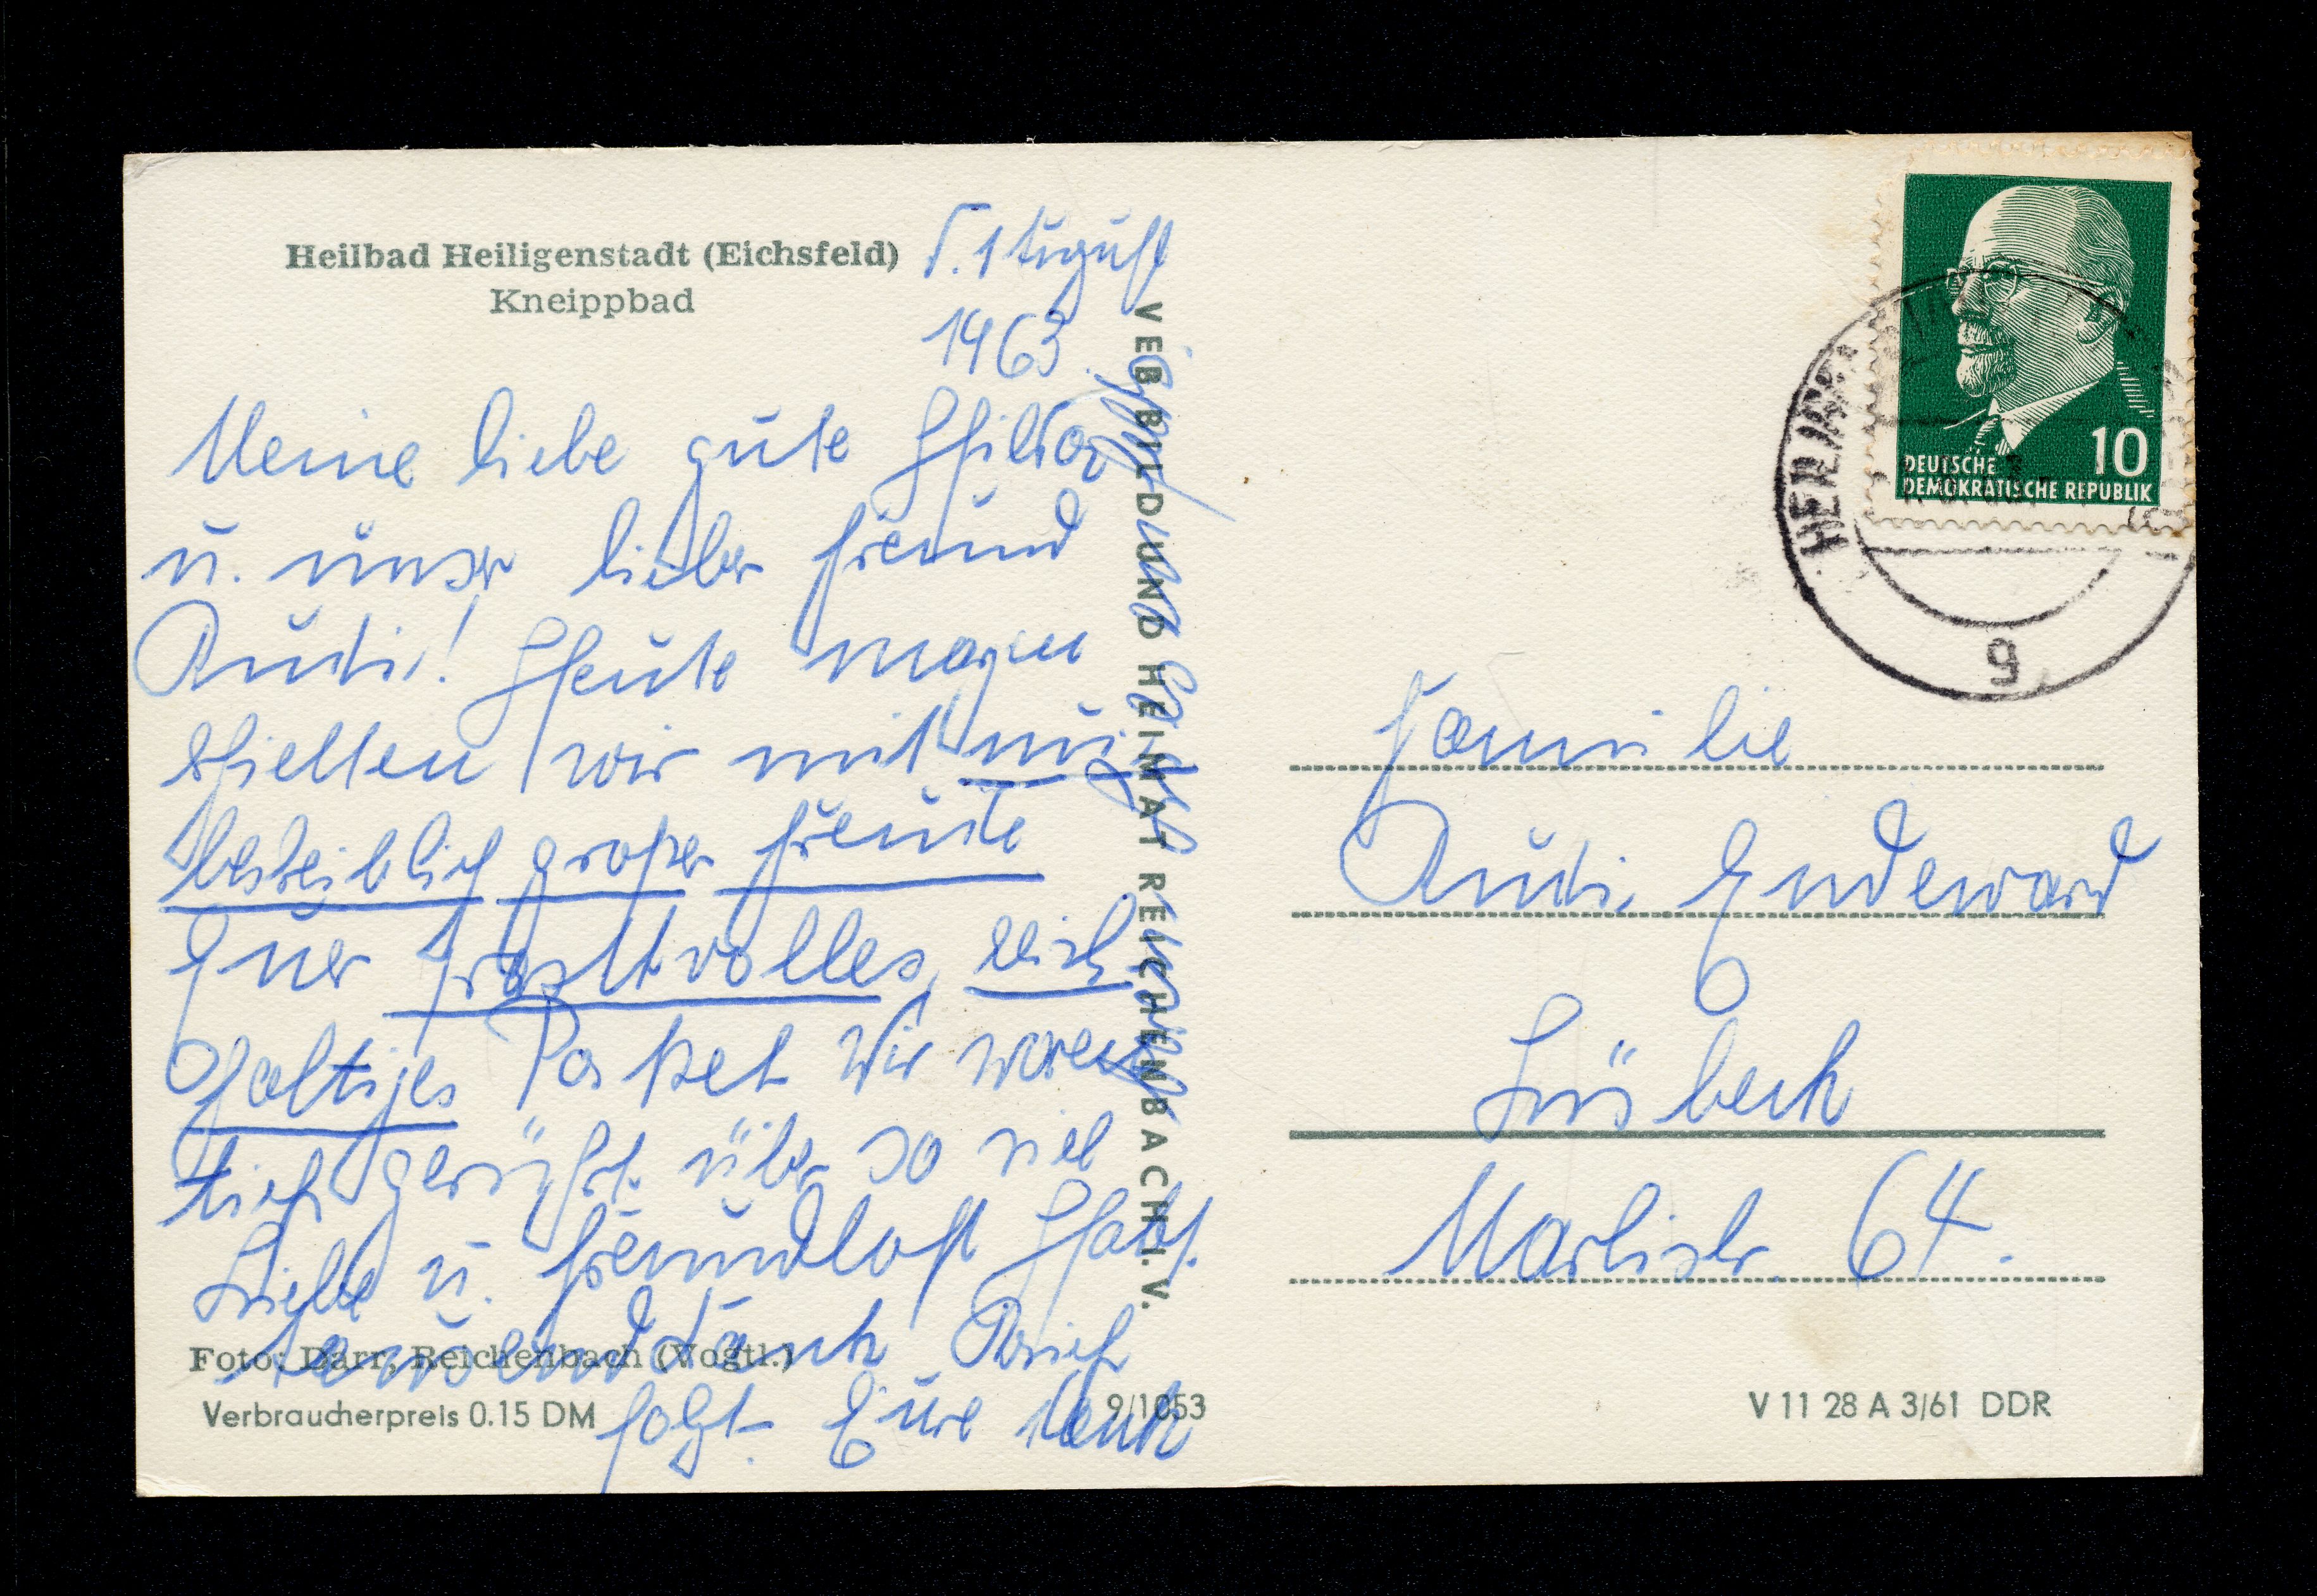 Heilbad Heiligenstadt (Eichsfeld)
Kneippbad
1. August
1963.
Meine liebe gute
u. unser lieber Freund
Rudi! Heute morgen
erhielten wir mit
großer Freude
Euer prachtvolles, reich
haltiges Paket Wir waren
tief gerührt über so viel
Liebe u. Freundschaft Habt
tausend Dank Brief
folgt. Eure dank
Foto: Darr, Reichenbach (Vogtl.)
Verbraucherpreis 0.15 DM
9/1053
VEB BILD UND HEIMAT REICHENBACH I. V.
10
DEUTSCHE
DEMOKRATISCHE REPUBLIK
g
Familie
Rudi Endeward
Lübeck
Marlistr. 64.
V 11 28 A 3/61 DDR